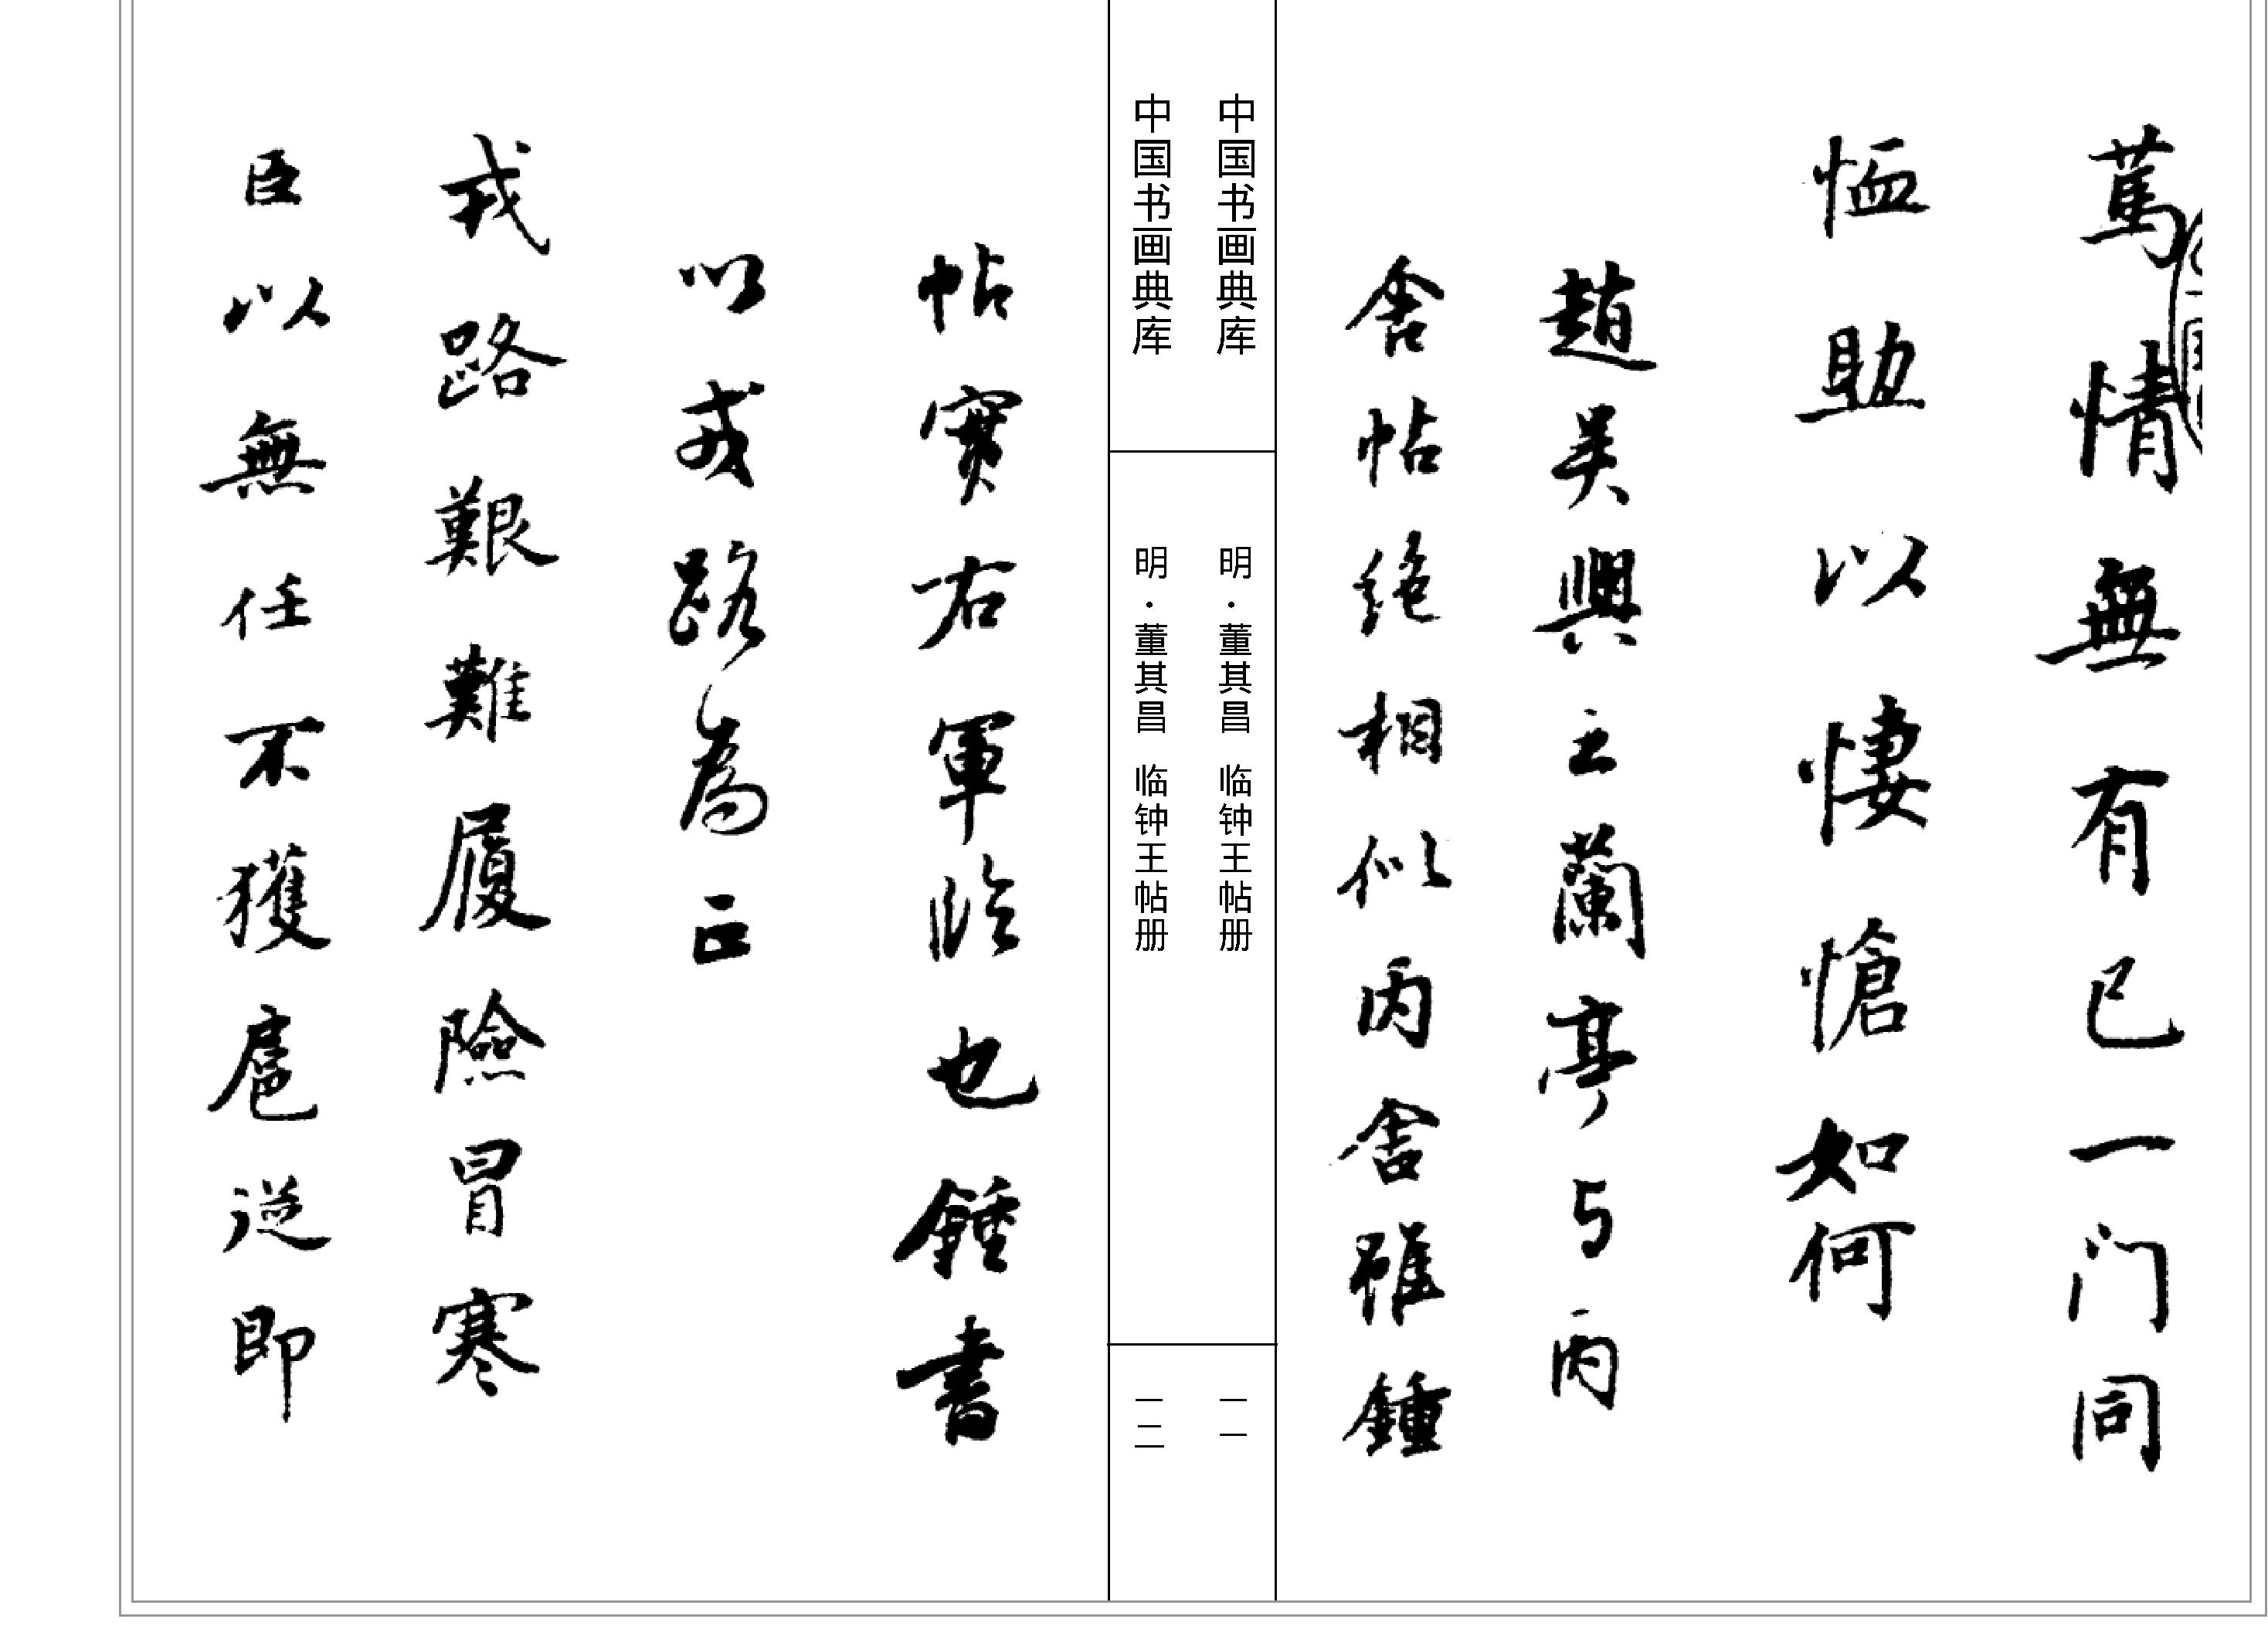 篤情無有已一门同
恤助以悽愴如何
趙吴興云蘭亭与丙
舍帖絶相似丙舍雖鍾
中国书画典库
明·董其昌 临钟王帖册
一一
中国书画典库
明·董其昌 临钟王帖册
一二
帖實右軍临也鍾書
以戎路為正
戎路艱難履險冒寒
臣以無任不獲扈從即